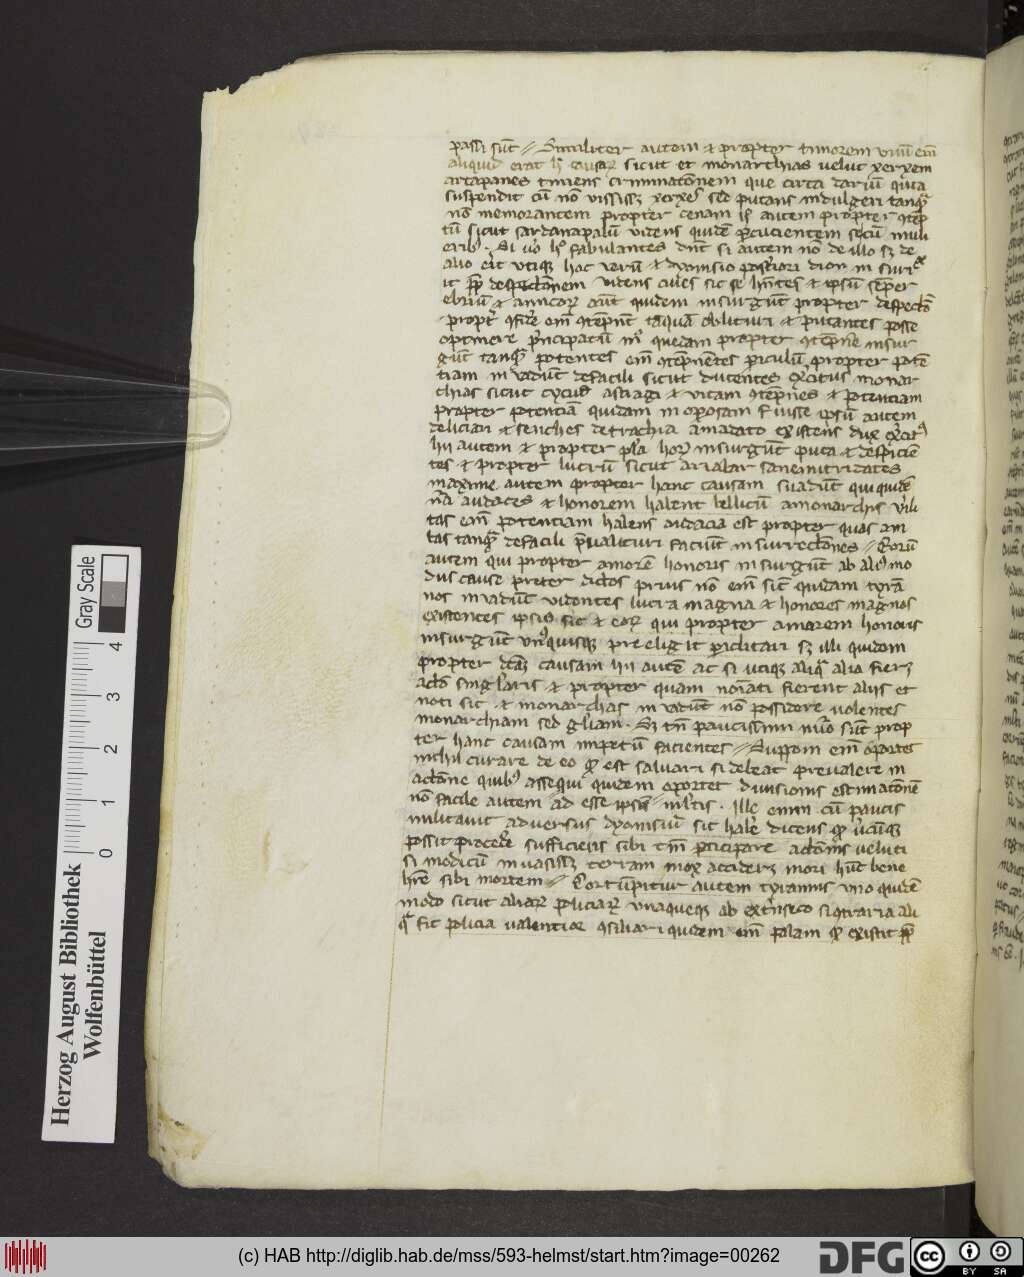 passi sunt Similiter autem et propter timorem unum enim
aliquid erat hec causar sicut et monarchias velut xerxem
artapanes timens criminationem que circa darium quia
suspendit cum non iussisset xerxes sed putans indulgeri tanquam
non memorantem propter cenam hii autem propter contemp
tum sicut sardanapalum videns quidem percucientem secum muli
eribus. Si vero hec fabulantes dicunt si autem non de illo sed de
alio erit utique hoc verum et dyonisio posteriori dion in sur
it propter despectionem videns cives sic se habentes et ipsum semper
ebrium et amicorum autem quidem insurgunt propter despectionem
propter confidere enim contempnunt tanquam oblituri et putantes posse
optinere principatum quedam propter contempnere insur
gunt tanquam potentes enim contempnentes periculum propter poten
tiam invadunt defacili sicut ducentes exercitus monar
chias sicut cyrus astiagi et vitam contempnens et potentiam
propter potentiam quidam in fuisse ipsum autem
deliciari et senches detrachia amadato existens dux exercitus
hii autem et propter plura horum insurgunt puta et despicien
tes et propter lucrum sicut arialar sanemitridates
maxime autem propter hanc causam suadunt qui quidem
natura audaces et honorem habent bellicum amonarchis virili
tas enim potentiam habens audacia est propter quas am
bas tanquam defacili prevalituri faciunt insurrectiones Eorum
autem qui propter amorem honoris insurgunt ab alius mo
dus cause preter dictos prius non enim sicut quidam tyran
nos invadunt videntes lucra magna et honores magnos
existentes ipsis sic et eorum qui propter amorem honoris
insurgunt unusquisque preeligit periclitari sed illi quidem
propter dictam causam hii autem ac si utique aliqua alia fieret
actio singularis et propter quam nominati fierent aliis et
noti sic et monarchas invadunt non possidere volentes
monarchiam sed gloriam. Sed tamen paucissimi numero sunt prop
ter hanc causam impetum facientes Supponi enim oportet
nichil curare de eo quod est salvari si debeat prevalere in
actione quibus assequi quidem oportet divisionis estimationem
non facile autem ad esse ipsam multis. Ille enim cum paucis
militavit adversus dyonisium sic habere dicens quod ubicumque
possit procedere sufficiens sibi tantum participare actionis veluti
si modicum invasisset terram mox accideret mori hunc bene
habere sibi mortem Corrumpitur autem tyrannis uno quidem
modo sicut aliarum policiarum unaqueque ab extrinseco si contraria ali
qua sit policia valentior consiliari quidem enim palam quod existit propter
(c) HAB http://diglib.hab.de/mss/593-helmst/start.htm?image=00262
Herzog August Bibliothek
Wolfenbüttel
Gray Scale
0 1 2 3 4
DFG
cc BY SA